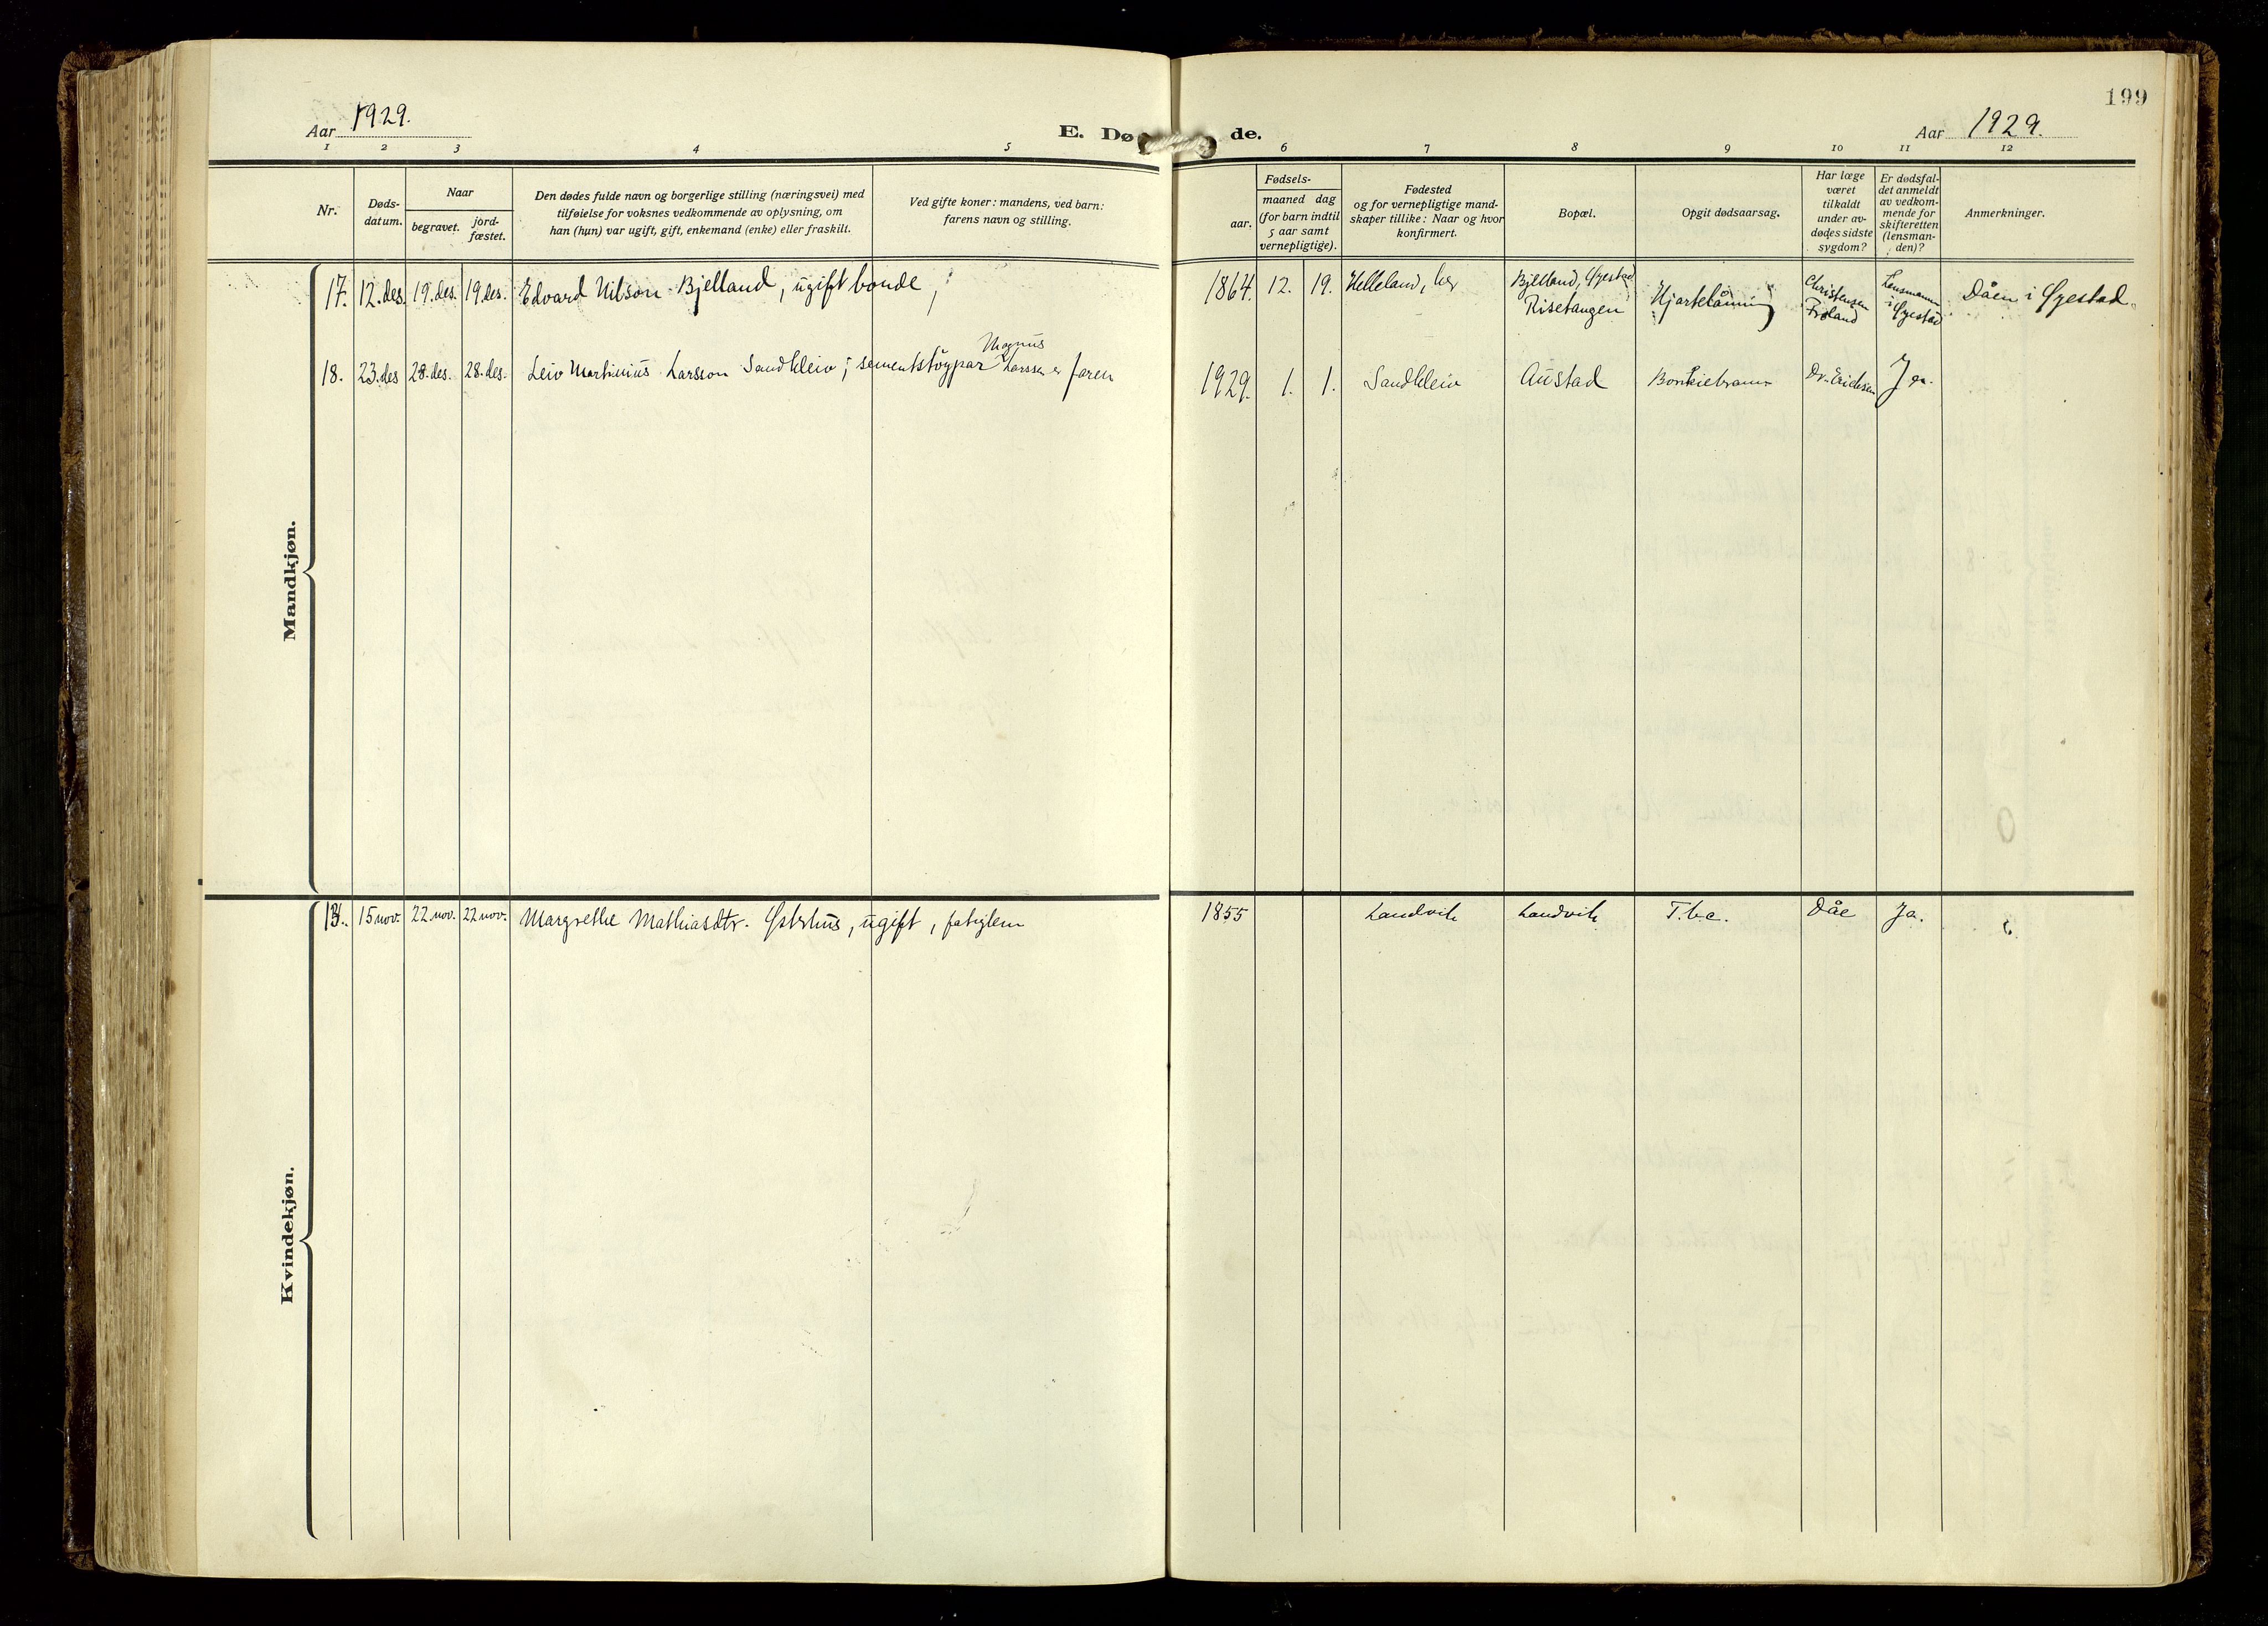 199
Aar 1929.
E. Dø de.
Aar 1929.
1 2 3 4 5 6 7 8 9 10 11 12
Nr.
Døds-
datum.
Naar
begravet.
jord-
fæstet.
Den dødes fulde navn og borgerlige stilling (næringsvei) med
tilføielse for voksnes vedkommende av oplysning, om
han (hun) var ugift, gift, enkemand (enke) eller fraskilt.
Ved gifte koner: mandens, ved barn:
farens navn og stilling.
Fødsels-
aar.
maaned dag
(for barn indtil
5 aar samt
vernepligtige).
Fødested
og for vernepligtige mand-
skaper tillike: Naar og hvor
konfirmert.
Bopæl.
Opgit dødsaarsag.
Har læge
været
tilkaldt
under av-
dødes sidste
sygdom?
Er dødsfal-
det anmeldt
av vedkom-
mende for
skifteretten
(lensman-
den)?
Anmerkninger.
Mandkjøn.
17. 12. des. 19. des. 19. des. Edvard Nilson Bjelland, ugift bonde,
1864. 12. 19. Helleland, her
Bjelland, Øyestad
Risetangen
Hjartelåming
Christensen
Froland
Lensmann
i Øyestad
Dåen i Øyestad.
18. 23. des 28. des. 28. des. Leiv Martinius Larsson Sandkleiv; sementstøypar Magnus Larssen er faren
1929. 1. 1. Sandkleiv Austad Dr. Erichsen Ja.
Kvindekjøn.
15 nov. 22 nov. 22 nov. Margrethe Mathiasdtr. Østerhus, ugift, fatiglem
1855 Landvik Landvik T.b.c. Dåe Ja.